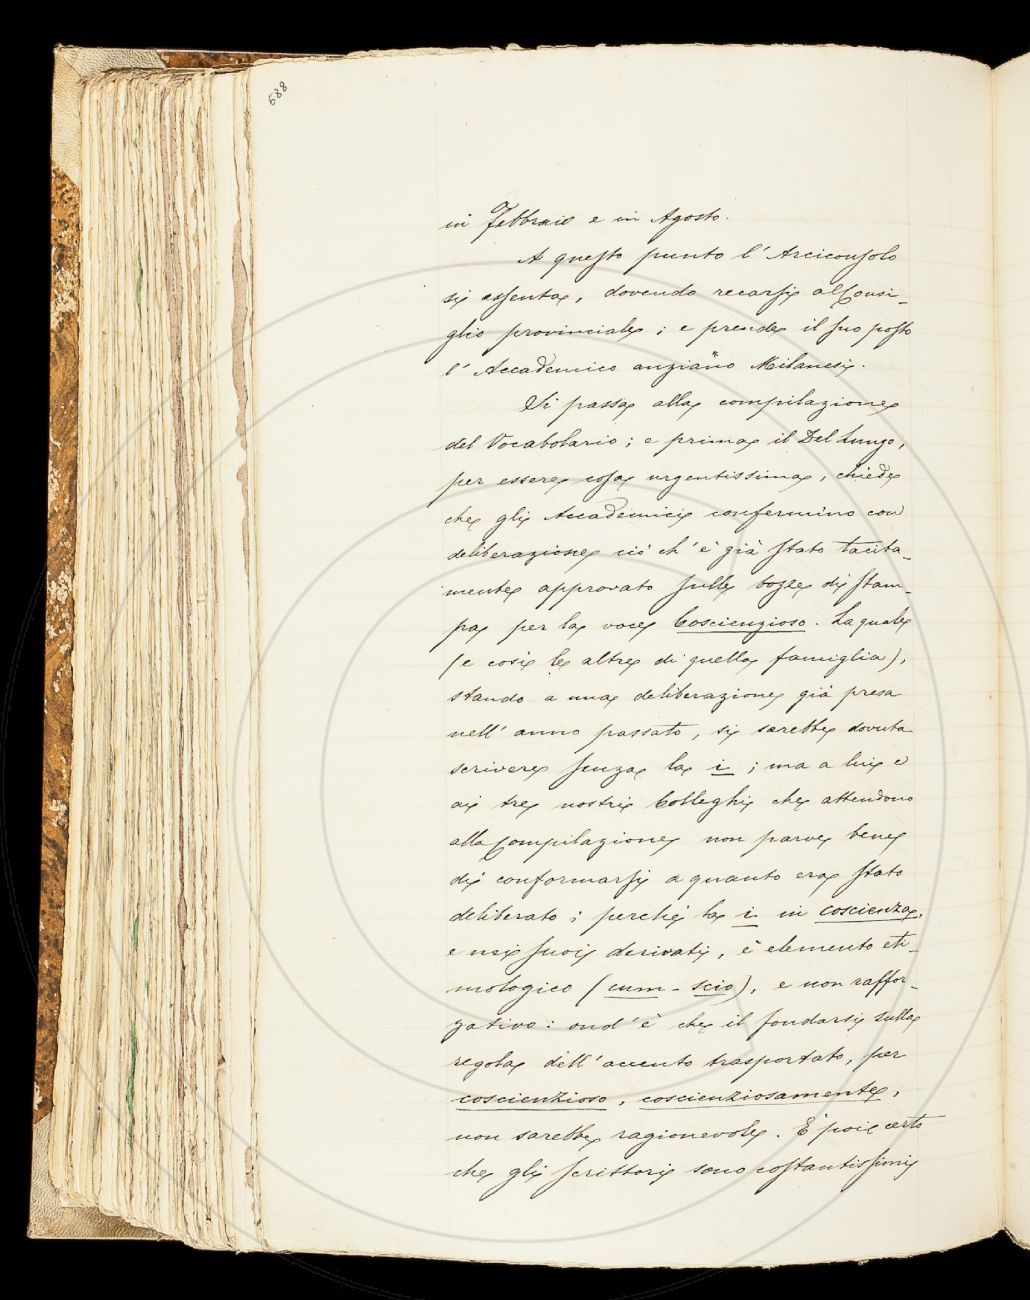 588
in Febbraio e in Agosto.
A questo punto l'Arciconsolo
si assenta, dovendo recarsi al Consi-
glio provinciale; e prende il suo posto
l'Accademico anziano Milanesi.
Si passa alla compilazione
del Vocabolario; e prima il Del Lungo,
per essere cosa urgentissima, chiede
che gli Accademici confermino con
deliberazione ciò ch'è già stato tacita-
mente approvato sulle bozze di stam-
pa per la voce Coscienzioso. La quale
(e così le altre di quella famiglia),
stando a una deliberazione già presa
nell'anno passato, si sarebbe dovuta
scrivere senza la i; ma a lui e
ai tre nostri Colleghi che attendono
alla Compilazione non parve bene
di conformarsi a quanto era stato
deliberato; perchè la i in coscienza,
e nei suoi derivati, è elemento eti-
mologico (cum-scio), e non raffor-
zativo: ond'è che il fondarsi sulla
regola dell'accento trasportato, per
coscienzioso, coscienziosamente,
non sarebbe ragionevole. È poi certo
che gli scrittori sono costantissimi